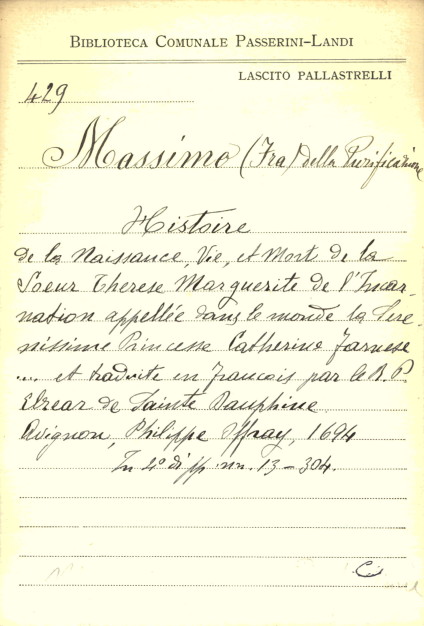 BIBLIOTECA COMUNALE PASSERINI-LANDI
LASCITO PALLASTRELLI
429
Massimo (Fra) della Purificazione
Histoire
de la Naissance, Vie, et Mort de la
Soeur Therese Marguerite de l'Incar-
nation appellée dans le monde la Sere-
nissime Princesse Catherine Farnese
.... et traduite en Francois par le R. P.
Elzear de Sainte Dauphine
Avignon, Philippe Offray, 1694
In 4° di pp. nn. 13-304.